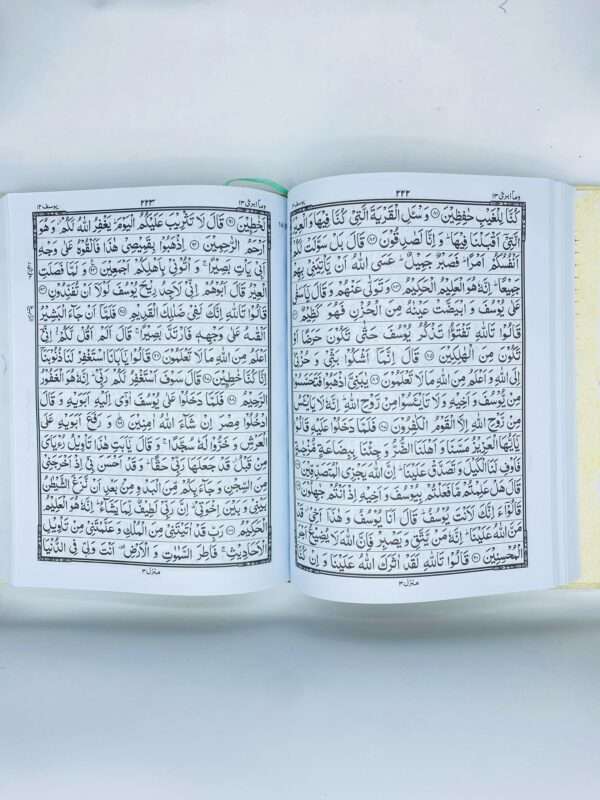 وما ابرئ ١٣
٢٢٢
يوسف ١٢
كُنَّا لِلْغَيْبِ حٰفِظِيْنَ ﴿٨١﴾ وَسْـَٔلِ الْقَرْيَةَ الَّتِيْ كُنَّا فِيْهَا وَالْعِيْرَ
الَّتِيْٓ اَقْبَلْنَا فِيْهَا ؕ وَاِنَّا لَصٰدِقُوْنَ ﴿٨٢﴾ قَالَ بَلْ سَوَّلَتْ لَكُمْ
اَنْفُسُكُمْ اَمْرًا ؕ فَصَبْرٌ جَمِيْلٌ ؕ عَسَى اللّٰهُ اَنْ يَّاْتِيَنِيْ بِهِمْ
جَمِيْعًا ؕ اِنَّهٗ هُوَ الْعَلِيْمُ الْحَكِيْمُ ﴿٨٣﴾ وَتَوَلّٰى عَنْهُمْ وَقَالَ يٰۤاَسَفٰى
عَلٰى يُوْسُفَ وَابْيَضَّتْ عَيْنٰهُ مِنَ الْحُزْنِ فَهُوَ كَظِيْمٌ ﴿٨٤﴾
قَالُوْا تَاللّٰهِ تَفْتَؤُا تَذْكُرُ يُوْسُفَ حَتّٰى تَكُوْنَ حَرَضًا اَوْ
تَكُوْنَ مِنَ الْهٰلِكِيْنَ ﴿٨٥﴾ قَالَ اِنَّمَاۤ اَشْكُوْا بَثِّيْ وَحُزْنِيْۤ
اِلَى اللّٰهِ وَاَعْلَمُ مِنَ اللّٰهِ مَا لَا تَعْلَمُوْنَ ﴿٨٦﴾ يٰبَنِيَّ اذْهَبُوْا فَتَحَسَّسُوْا
مِنْ يُّوْسُفَ وَاَخِيْهِ وَلَا تَايْـَٔسُوْا مِنْ رَّوْحِ اللّٰهِ ؕ اِنَّهٗ لَا يَايْـَٔسُ
مِنْ رَّوْحِ اللّٰهِ اِلَّا الْقَوْمُ الْكٰفِرُوْنَ ﴿٨٧﴾ فَلَمَّا دَخَلُوْا عَلَيْهِ قَالُوْا
يٰۤاَيُّهَا الْعَزِيْزُ مَسَّنَا وَاَهْلَنَا الضُّرُّ وَجِئْنَا بِبِضَاعَةٍ مُّزْجٰىةٍ
فَاَوْفِ لَنَا الْكَيْلَ وَتَصَدَّقْ عَلَيْنَا ؕ اِنَّ اللّٰهَ يَجْزِي الْمُتَصَدِّقِيْنَ ﴿٨٨﴾
قَالَ هَلْ عَلِمْتُمْ مَّا فَعَلْتُمْ بِيُوْسُفَ وَاَخِيْهِ اِذْ اَنْتُمْ جٰهِلُوْنَ ﴿٨٩﴾
قَالُوْۤا ءَاِنَّكَ لَاَنْتَ يُوْسُفُ ؕ قَالَ اَنَا يُوْسُفُ وَهٰذَاۤ اَخِيْ ۫ قَدْ
مَنَّ اللّٰهُ عَلَيْنَا ؕ اِنَّهٗ مَنْ يَّتَّقِ وَيَصْبِرْ فَاِنَّ اللّٰهَ لَا يُضِيْعُ اَجْرَ
الْمُحْسِنِيْنَ ﴿٩٠﴾ قَالُوْا تَاللّٰهِ لَقَدْ اٰثَرَكَ اللّٰهُ عَلَيْنَا وَاِنْ كُنَّا
منزل ٣
وما ابرئ ١٣
٢٢٣
يوسف ١٢
لَخٰطِـِٕيْنَ ﴿٩١﴾ قَالَ لَا تَثْرِيْبَ عَلَيْكُمُ الْيَوْمَ ؕ يَغْفِرُ اللّٰهُ لَكُمْ ؗ وَهُوَ
اَرْحَمُ الرّٰحِمِيْنَ ﴿٩٢﴾ اِذْهَبُوْا بِقَمِيْصِيْ هٰذَا فَاَلْقُوْهُ عَلٰى وَجْهِ
اَبِيْ يَاْتِ بَصِيْرًا ۚ وَاْتُوْنِيْ بِاَهْلِكُمْ اَجْمَعِيْنَ ﴿٩٣﴾ وَلَمَّا فَصَلَتِ
الْعِيْرُ قَالَ اَبُوْهُمْ اِنِّيْ لَاَجِدُ رِيْحَ يُوْسُفَ لَوْلَاۤ اَنْ تُفَنِّدُوْنِ ﴿٩٤﴾
قَالُوْا تَاللّٰهِ اِنَّكَ لَفِيْ ضَلٰلِكَ الْقَدِيْمِ ﴿٩٥﴾ فَلَمَّاۤ اَنْ جَآءَ الْبَشِيْرُ
اَلْقٰىهُ عَلٰى وَجْهِهٖ فَارْتَدَّ بَصِيْرًا ۚ قَالَ اَلَمْ اَقُلْ لَّكُمْ ۚ اِنِّيْۤ
اَعْلَمُ مِنَ اللّٰهِ مَا لَا تَعْلَمُوْنَ ﴿٩٦﴾ قَالُوْا يٰۤاَبَانَا اسْتَغْفِرْ لَنَا ذُنُوْبَنَاۤ
اِنَّا كُنَّا خٰطِـِٕيْنَ ﴿٩٧﴾ قَالَ سَوْفَ اَسْتَغْفِرُ لَكُمْ رَبِّيْ ؕ اِنَّهٗ هُوَ الْغَفُوْرُ
الرَّحِيْمُ ﴿٩٨﴾ فَلَمَّا دَخَلُوْا عَلٰى يُوْسُفَ اٰوٰۤى اِلَيْهِ اَبَوَيْهِ وَقَالَ
ادْخُلُوْا مِصْرَ اِنْ شَآءَ اللّٰهُ اٰمِنِيْنَ ﴿٩٩﴾ وَرَفَعَ اَبَوَيْهِ عَلَى
الْعَرْشِ وَخَرُّوْا لَهٗ سُجَّدًا ۚ وَقَالَ يٰۤاَبَتِ هٰذَا تَاْوِيْلُ رُءْيَايَ
مِنْ قَبْلُ ؗ قَدْ جَعَلَهَا رَبِّيْ حَقًّا ؕ وَقَدْ اَحْسَنَ بِيْۤ اِذْ اَخْرَجَنِيْ
مِنَ السِّجْنِ وَجَآءَ بِكُمْ مِّنَ الْبَدْوِ مِنْۢ بَعْدِ اَنْ نَّزَغَ الشَّيْطٰنُ
بَيْنِيْ وَبَيْنَ اِخْوَتِيْ ؕ اِنَّ رَبِّيْ لَطِيْفٌ لِّمَا يَشَآءُ ؕ اِنَّهٗ هُوَ الْعَلِيْمُ
الْحَكِيْمُ ﴿١٠٠﴾ رَبِّ قَدْ اٰتَيْتَنِيْ مِنَ الْمُلْكِ وَعَلَّمْتَنِيْ مِنْ تَاْوِيْلِ
الْاَحَادِيْثِ ۚ فَاطِرَ السَّمٰوٰتِ وَالْاَرْضِ ۫ اَنْتَ وَلِيّٖ فِي الدُّنْيَا
منزل ٣